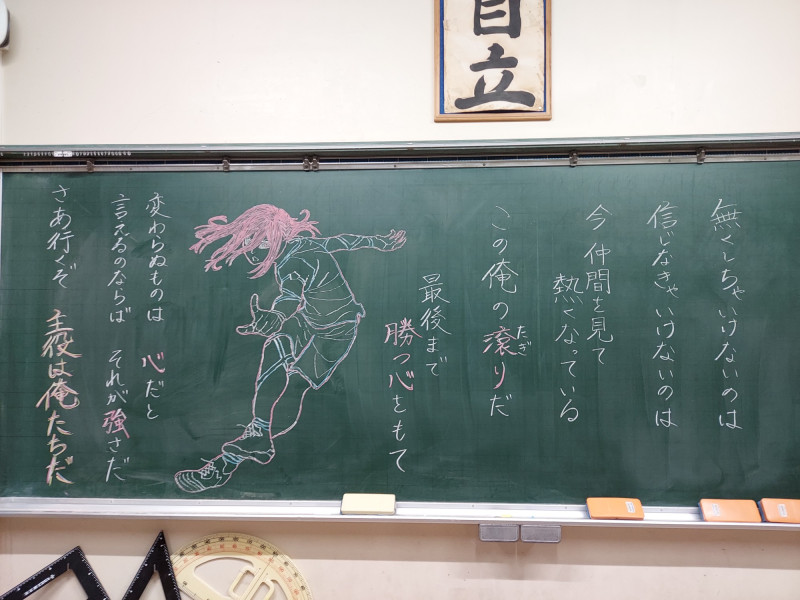 自立
無くしちゃいけないのは
信じなきゃいけないのは
今 仲間を見て
熱くなっている
この俺の滾りだ
たぎ
最後まで
勝つ心をもて
変わらぬものは 心だと
言えるのならば それが強さだ
さあ行くぞ 主役は俺たちだ